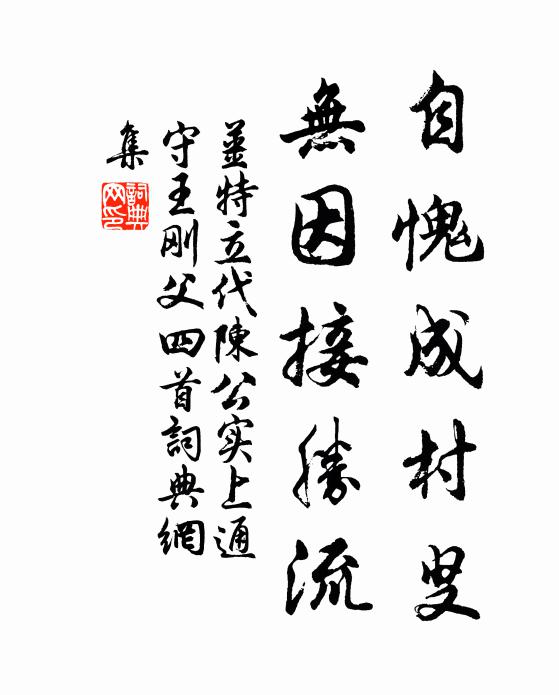 自愧成村叟
無因接勝流
姜特立代陳公实上通
守王刚父四首詞典網
集
詞典网印